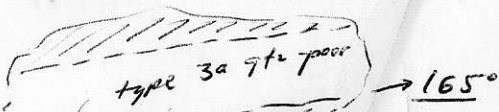 type 3a qtz-poor
→ 165°